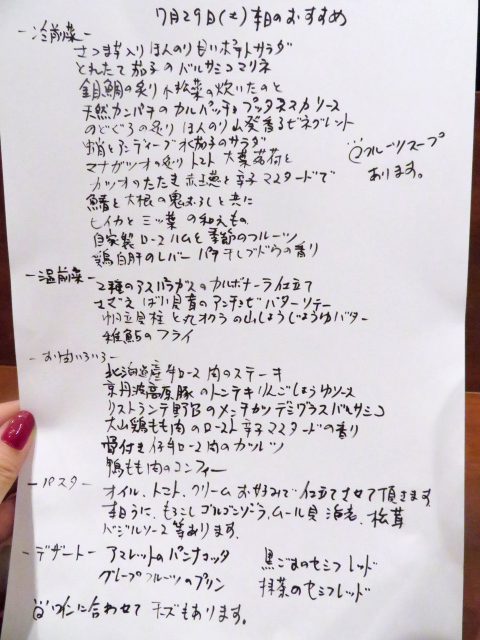 7月29日(土)本日のおすすめ
-冷前菜-
さつま芋入り ほんのり甘いポテトサラダ
とれたて茄子のバルサミコマリネ
金目鯛の炙り 小松菜の炊いたのと
天然カンパチのカルパッチョ プッタネスカソース
のどぐろの炙り ほんのり山葵香るビネグレット
蛸とアンディーブ 水茄子のサラダ
マナガツオの炙り トマト 大葉 茗荷と
カツオのたたき 赤玉葱と辛子マスタードで
鰆と大根の鬼おろしと共に
ヒイカと三ツ葉の和えもの
自家製ロースハムと季節のフルーツ
鶏白肝のレバーパテ 干しブドウの香り
@フルーツスープ
あります。
-温前菜-
2種のアスパラガスのカルボナーラ仕立て
さざえ ばい貝 茸のアンチョビバターソテー
帆立貝柱と丸オクラの山しょうじょうゆバター
稚鮎のフライ
-お肉いろいろ-
北海道産牛ロース肉のステーキ
京丹波高原豚のトンテキ りんごしょうゆソース
リストランテ野呂のメンチカツ デミグラスバルサミコ
大山鶏もも肉のロースト 辛子マスタードの香り
骨付き仔牛ロース肉のカツレツ
鴨もも肉のコンフィー
-パスタ-
オイル、トマト、クリーム お好みで仕立てさせて頂きます
本日うに、もろこし、ゴルゴンゾラ、ムール貝 海老、松茸
バジルソース等あります。
-デザート-
アマレットのパンナコッタ
グレープフルーツのプリン
黒ごまのセミフレッド
抹茶のセミフレッド
ワインに合わせて チーズもあります。